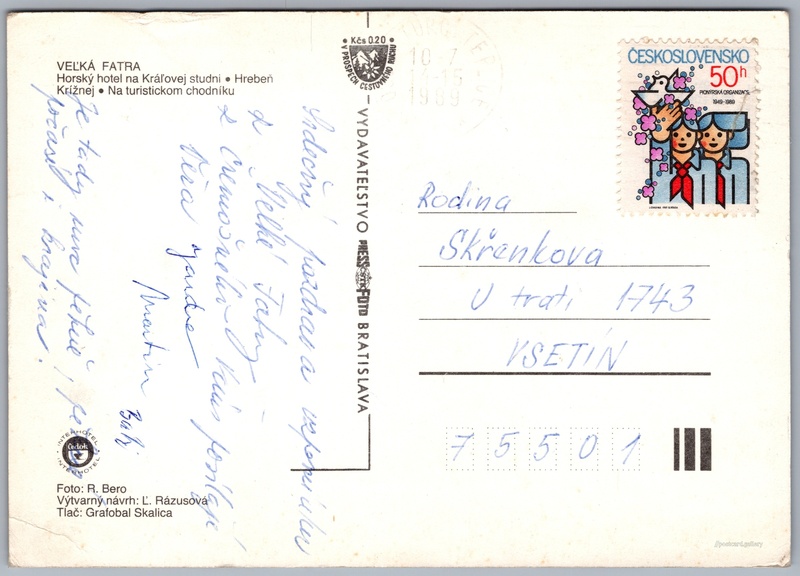 VEĽKÁ FATRA
Horský hotel na Kráľovej studni • Hrebeň
Krížnej • Na turistickom chodníku
Srdečný pozdrav a vzpomínku
z Velké Fatry
z Vám posílají
Věra
Martin
Je tady moc pěkně!
počasí i krajina!
INTERHOTEL
Čedok
INTERHOTEL
Foto: R. Bero
Výtvarný návrh: Ľ. Rázusová
Tlač: Grafobal Skalica
Kčs 0.20
V PROSPECH CESTOVNÉHO RUCHU
VYDAVATEĽSTVO PRESSFOTO BRATISLAVA
10.7.
1989
ČESKOSLOVENSKO
50h
PIONÝRSKÁ ORGANIZACE
1949-1989
Rodina
Skřenkova
U trati 1743
VSETÍN
75501
//postcard.gallery